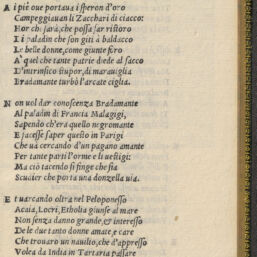 A i piè oue portaua i speron d'oro
Campeggiauan li Zacchari di ciacco:
Hor chi sarà, che possa far ristoro
E i paladin che son giti à baldacco
Le belle donne, come giunte foro
A' quel che tante patrie diede al sacco
D'intrinsico stupor, di marauiglia
Bradamante turbò l'arcate ciglia.
N on uol dar conoscenza Bradamante
Al paladin di Francia Malagigi,
Sapendo ch'era quello negromante
E facesse saper questo in Parigi
Che uà cercando d'un pagano amante
Per tante parti l'orme e li uestigi:
Ma ciò tacendo si finge che sia
Scudier che porta una donzella uia.
E t uarcando oltra nel Peloponesso
Acaia, Locri, Etholia giunse al mare
Non senza danno grande, & interesso
De le due tanto donne amate, e care
Che trouaro un nauilio, che d'appresso
Volea da India in Tartaria passare